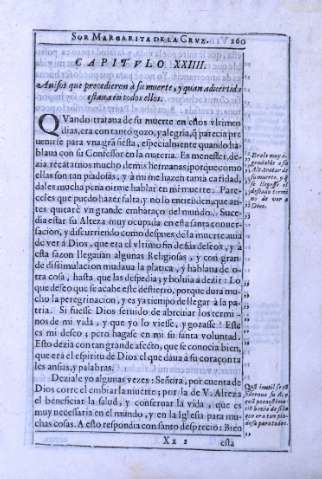 SOR MARGARITA DE LA CRVZ. 260
CAPITVLO XXIIII.
Auisos que procedieron à su muerte, y quan aduertida
estaua en todos ellos.
QVando trataua de su muerte en estos vltimos
dias, era con tanto gozo, y alegria, q̃ parecia pre
uenirse para vna grã fiesta, especialmente quando ha
blaua con su Confessor en la materia. Es menester, de
zia
como
ellas son tan piadosas, y à mi me hazen tanta caridad,
dales mucha pena oirme hablar en mi muerte. Pare-
celes que puedo hazer falta, y no lo entiẽden, que an-
tes quitarè vn grande embaraço del mundo. Suce-
dia estar su Alteza muy ocupada en esta santa conuer-
sacion, y discurriendo como despues de la muerte auia
de ver à Dios, que era el vltimo fin de sus deseos, y à
esta sazon llegauan algunas Religiosas, y con gran-
de dissimulacion mudaua la platica, y hablaua de o-
tra cosa, hasta que las despedia, y boluia à dezir: Lo
que deseo que se acabe este destierro, porque dura mu-
cho la peregrinacion, y es ya tiempo de llegar à la pa-
tria. Si fuesse Dios seruido de abreuiar los termi-
nos de mi vida, y que yo lo viesse, y gozasse! Este
es mi deseo; pero hagase en mi su santa voluntad.
Esto dezia con tan grande afecto, que se conocia bien
que era el espiritu de Dios el que daua à su coraçon ta
les ansias, y palabras.
Deziale yo algunas vezes: Señora, por cuenta de
Dios corre el embiar la muerte; por la de V. Alteza
el beneficiar la salud, y conseruar la vida, que es
muy necessaria en el mundo, y en la Iglesia para mu-
chas cosas. A esto respondia con santo desprecio: Bien
Xx 2 está
Erale muy a-
gradable
tratar de
su muerte, y
se llegasse el
termi
no de ver a
Dios.